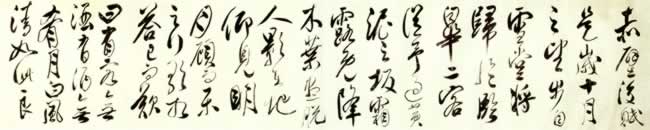 赤壁後賦
是歲十月
之望步自
雪堂將
歸於臨
皋二客
從予過黃
泥之坂霜
露既降
木葉盡脫
人影在地
仰見明
月顧而樂
之行歌相
答已而歎
曰有客無
酒有酒無
肴月白風
清如此良